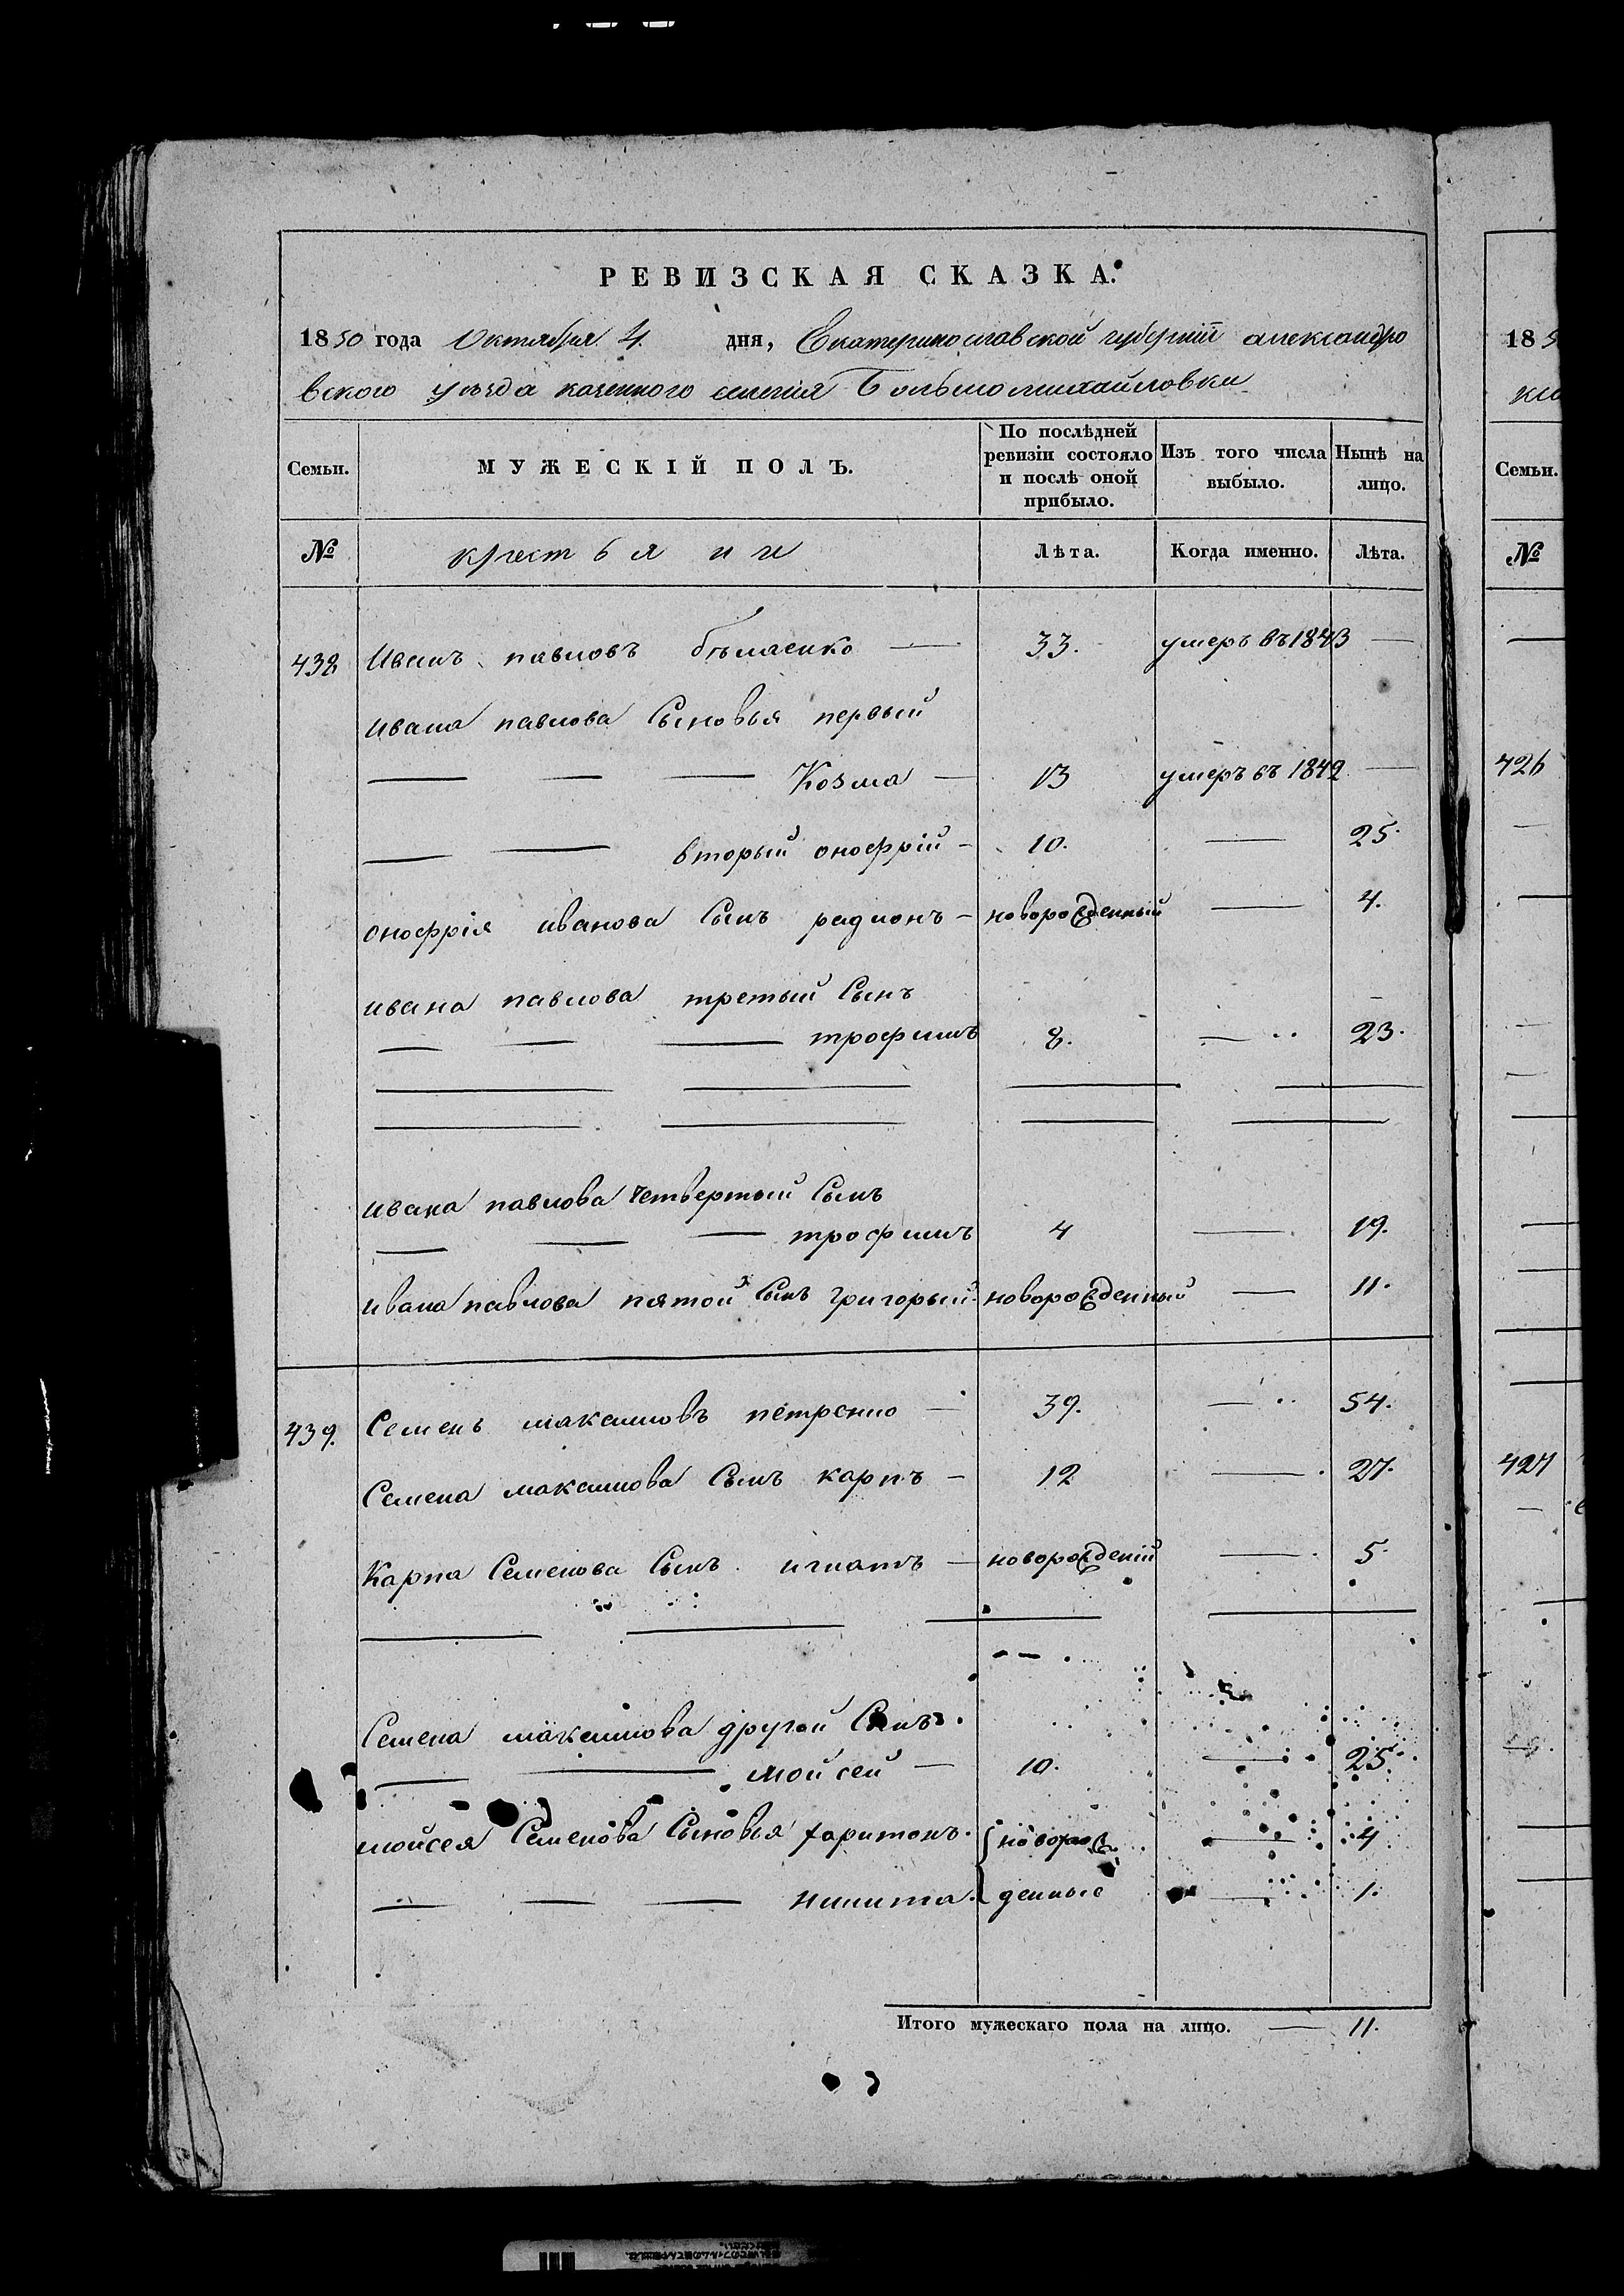 РЕВИЗСКАЯ СКАЗКА.
1850 года Октября 4 дня, Екатеринославской губернїи александро
вского уѣзда казенного селенїя Большомихайловки
Семьи. МУЖЕСКІЙ ПОЛЪ. По послѣдней ревизіи состояло и послѣ оной прибыло. Изъ того числа выбыло. Нынѣ на лицо.
№ крестьяни Лѣта. Когда именно. Лѣта.
438 Иванъ павловъ бѣлаенко — 33. умеръ въ 1843 —
ивана павлова Сыновья первый
— — — Козма — 13 умеръ въ 1842 —
— — вторый онофрій — 10. — 25.
онофрія иванова Сынъ радионъ — новорожденный — 4.
ивана павлова третый Сынъ
— — — трофимъ 8. — 23.
ивана павлова четвертый Сынъ
— — — трофимъ 4 — 19.
ивана павлова пятой Сынъ григорый новорожденный — 11.
439. Семенъ максимовъ петренко — 39. — 54.
Семена максимова Сынъ карпъ — 12 — 27.
Карпа Семенова Сынъ игнатъ — новорожденій — 5.
Семена максимова другой Сынъ.
— — мойсей — 10. — 25.
мойсея Семенова Сыновья харитонъ. новорож — 4
— — — никита. денные — 1.
Итого мужескаго пола на лицо. — 11.
185
Семьи.
№
426
427